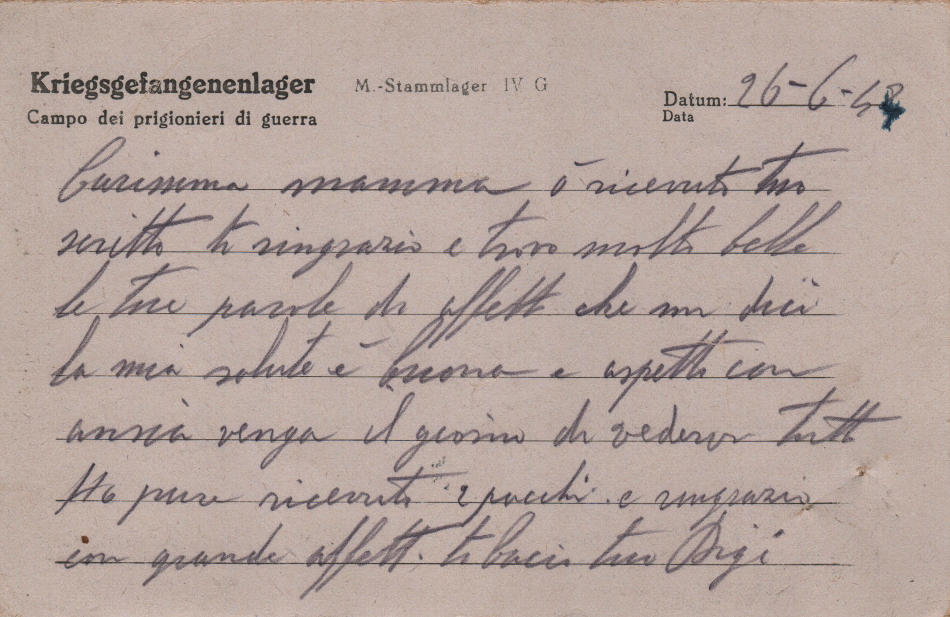 Kriegsgefangenenlager
Campo dei prigionieri di guerra
M.-Stammlager IV G
Datum: 26-6-44
Data
Carissima mamma ò ricevuto tuo
scritto ti ringrazio e trovo molto belle
le tue parole di affetto che mi dici
la mia salute è buona e aspetto con
ansia venga il giorno di vedervi tutti
Ho pure ricevuto 2 pacchi e ringrazio
con grande affetto. ti bacio tuo